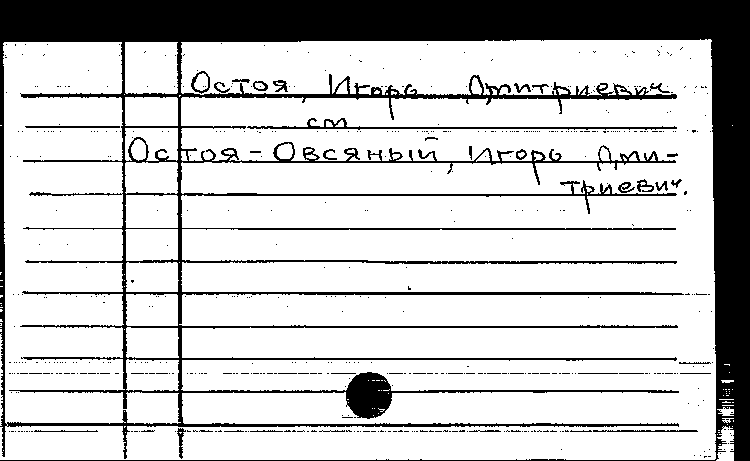 Остоя, Игорь Дмитриевич
см.
Остоя-Овсяный, Игорь Дми-
триевич.